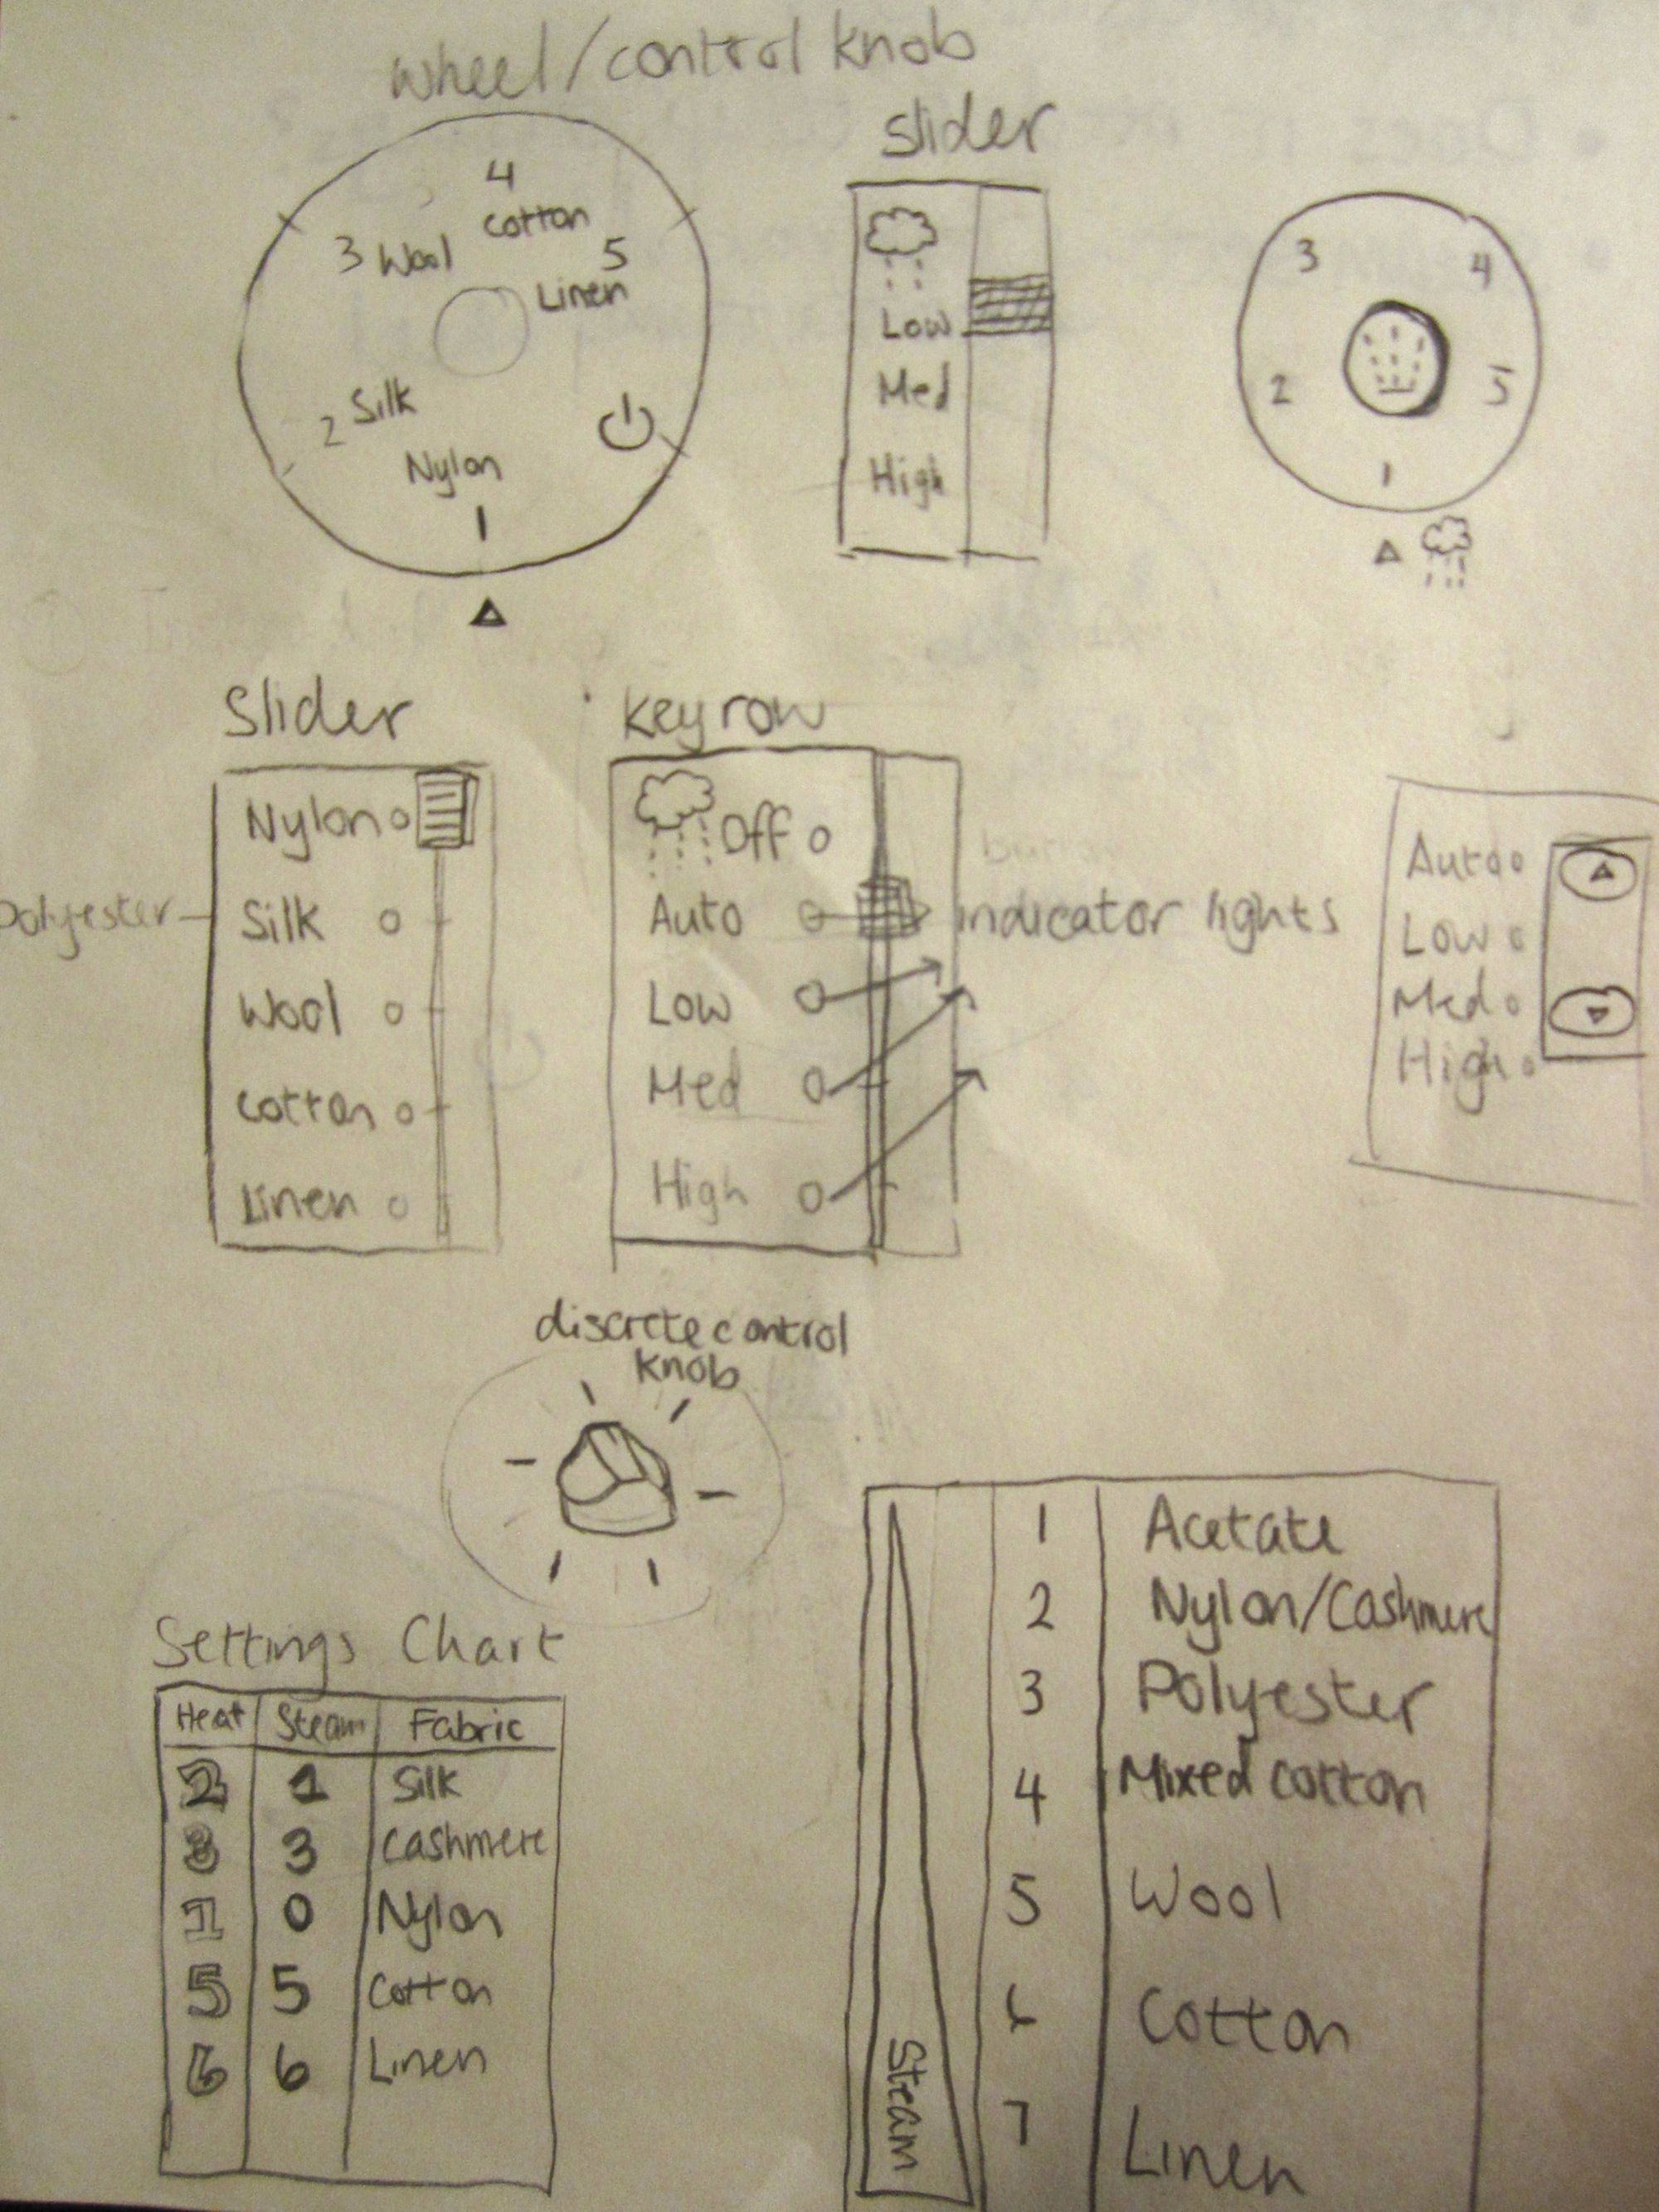 wheel/control knob
slider
4
cotton
3 Wool
5
Linen
2 Silk
Nylon
1
Low
Med
High
3
4
2
5
1
Slider
Nylon
Polyester
Silk
Wool
cotton
Linen
key row
Off
Auto
Low
Med
High
indicator lights
Auto
Low
Med
High
discrete control
knob
Settings Chart
Heat Steam Fabric
2 1 Silk
3 3 Cashmere
1 0 Nylon
5 5 Cotton
6 6 Linen
1 Acetate
2 Nylon/Cashmere
3 Polyester
4 Mixed cotton
5 Wool
6 Cotton
7 Linen
Steam